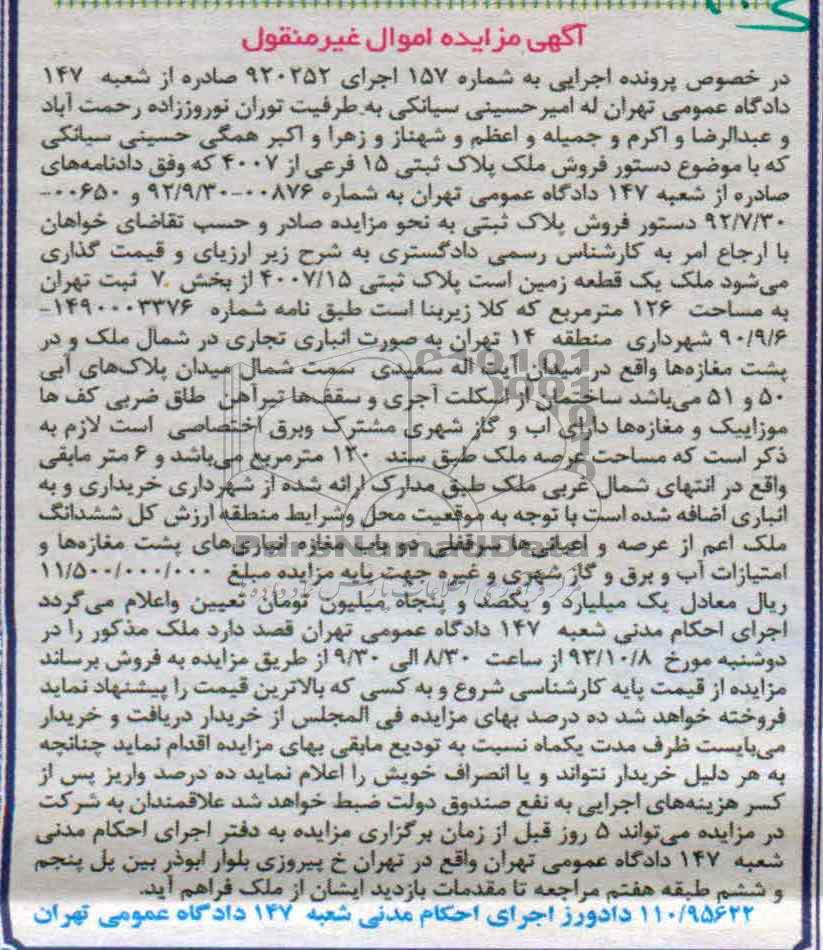 آگهی مزایده اموال غیرمنقول
در خصوص پرونده اجرایی به شماره ۱۵۷ اجرای ۹۲۰۲۵۲ صادره از شعبه ۱۴۷
دادگاه عمومی تهران له امیرحسینی سیانکی به طرفیت توران نوروززاده رحمت آباد
و عبدالرضا و اکرم و جمیله و اعظم و شهناز و زهرا و اکبر همگی حسینی سیانکی
که با موضوع دستور فروش ملک پلاک ثبتی ۱۵ فرعی از ۴۰۰۷ که وفق دادنامه‌های
صادره از شعبه ۱۴۷ دادگاه عمومی تهران به شماره ۰۰۸۷۶-۹۲/۹/۳۰ و ۰۰۶۵۰-
۹۲/۷/۳۰ دستور فروش پلاک ثبتی به نحو مزایده صادر و حسب تقاضای خواهان
با ارجاع امر به کارشناس رسمی دادگستری به شرح زیر ارزیای و قیمت گذاری
می‌شود ملک یک قطعه زمین است پلاک ثبتی ۴۰۰۷/۱۵ از بخش ۷ ثبت تهران
به مساحت ۱۲۶ مترمربع که کلا زیربنا است طبق نامه شماره ۱۴۹۰۰۰۳۳۷۶-
۹۰/۹/۶ شهرداری منطقه ۱۴ تهران به صورت انباری تجاری در شمال ملک و در
پشت مغازه‌ها واقع در میدان آیت اله سعیدی سمت شمال میدان پلاک‌های آبی
۵۰ و ۵۱ می‌باشد ساختمان از اسکلت آجری و سقف‌ها تیرآهن طاق ضربی کف ها
موزاییک و مغازه‌ها دارای آب و گاز شهری مشترک وبرق اختصاصی است لازم به
ذکر است که مساحت عرصه ملک طبق سند ۱۲۰ مترمربع می‌باشد و ۶ متر مابقی
واقع در انتهای شمال غربی ملک طبق مدارک ارائه شده از شهرداری خریداری و به
انباری اضافه شده است با توجه به موقعیت محل وشرایط منطقه ارزش کل ششدانگ
ملک اعم از عرصه و اعیانی‌ها سرقفلی دو باب مغازه انباری‌های پشت مغازه‌ها و
امتیازات آب و برق و گاز شهری و غیره جهت پایه مزایده مبلغ ۱۱/۵۰۰/۰۰۰/۰۰۰
ریال معادل یک میلیارد و یکصد و پنجاه میلیون تومان تعیین واعلام می‌گردد
اجرای احکام مدنی شعبه ۱۴۷ دادگاه عمومی تهران قصد دارد ملک مذکور را در
دوشنبه مورخ ۹۳/۱۰/۸ از ساعت ۸/۳۰ الی ۹/۳۰ از طریق مزایده به فروش برساند
مزایده از قیمت پایه کارشناسی شروع و به کسی که بالاترین قیمت را پیشنهاد نماید
فروخته خواهد شد ده درصد بهای مزایده فی المجلس از خریدار دریافت و خریدار
می‌بایست ظرف مدت یکماه نسبت به تودیع مابقی بهای مزایده اقدام نماید چنانچه
به هر دلیل خریدار نتواند و یا انصراف خویش را اعلام نماید ده درصد واریز پس از
کسر هزینه‌های اجرایی به نفع صندوق دولت ضبط خواهد شد علاقمندان به شرکت
در مزایده می‌تواند ۵ روز قبل از زمان برگزاری مزایده به دفتر اجرای احکام مدنی
شعبه ۱۴۷ دادگاه عمومی تهران واقع در تهران خ پیروزی بلوار ابوذر بین پل پنجم
و ششم طبقه هفتم مراجعه تا مقدمات بازدید ایشان از ملک فراهم آید.
۱۱۰/۹۵۶۲۲ دادورز اجرای احکام مدنی شعبه ۱۴۷ دادگاه عمومی تهران
ParsNamadData